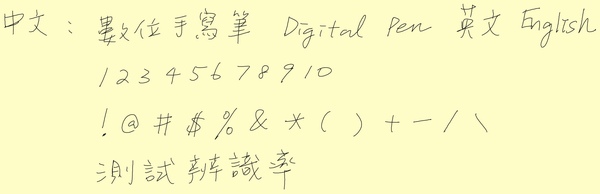 中文：數位手寫筆 Digital Pen 英文 English
1 2 3 4 5 6 7 8 9 10
! @ # $ % & * ( ) + - / \
測試辨識率